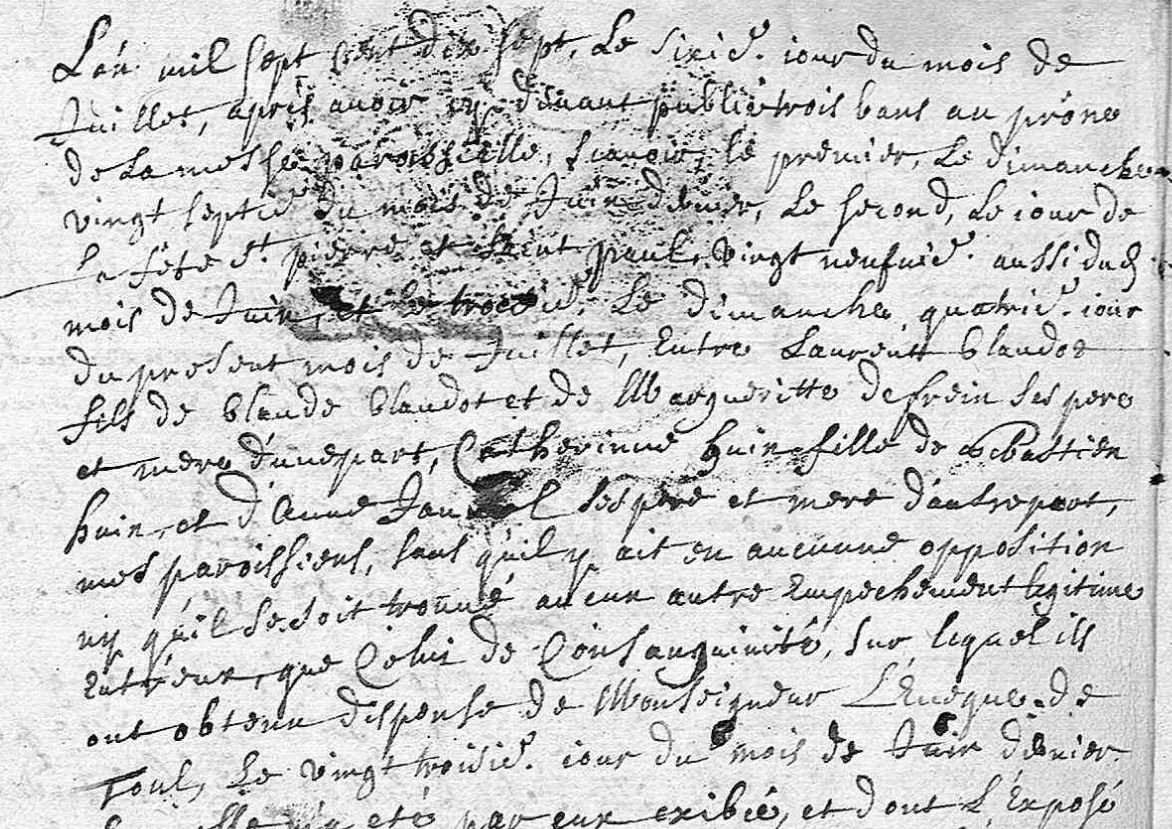 L'an mil sept cent dix sept, Le sixie. iour du mois de
Juillet, apres auoir cy deuant publié trois bans au prône
de La messe paroissielle, scauoir, le premier, Le dimanche
vingt septie du mois de Juin dernier, Le second, Le iour de
la fête St. pierre et saint paul, vingt neufuie. aussi dud
mois de Juin, et le troisie. Le dimanche, quatrie. iour
du present mois de Juillet, Entre Laurentt Claudot
fils de Claude Claudot et de Margueritte defrein ses pere
et mere d'unepart, Catherinne huin fille de sebastien
huin, et d'Anne ses pere et mere d'autrepart,
mes paroissiens, sans qu'il y ait eu aucunne opposition
ny qu'il se soit trouué aucun autre Empechement legitime
Entr'eux, que Celui de Consanguinité, sur lequel ils
ont obtenu dispense de Monseigneur L'Eueque de
Toul, Le vingt troisie. iour du mois de Juin dernier
laquelle m'a eté par eux exibié, et dont L'Exposé